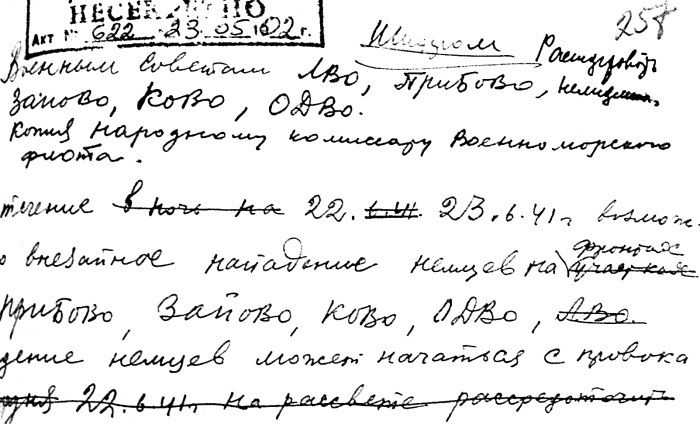 НЕСЕКРЕТНО
258
Акт № 622 23 05 2002 г.
Шифром
Расшифровать
Военным Советам ЛВО, ПрибОВО, немедленно.
ЗапОВО, КОВО, ОДВО.
Копия народному комиссару Военноморского
флота.
течение в ночь на 22. 6.41. 23.6.41 г. возмож-
о внезапное нападение немцев на участках
фронтах
ПрибОВО, ЗапОВО, КОВО, ОДВО, ЛВО.
дение немцев может начаться с провока
22.6.41 г. на рассвете рассредоточить